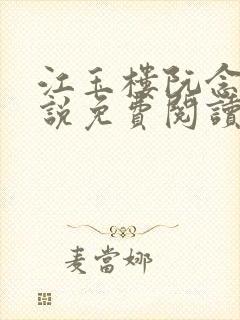 江玉樓阮念
說免費閱讀
麦當娜